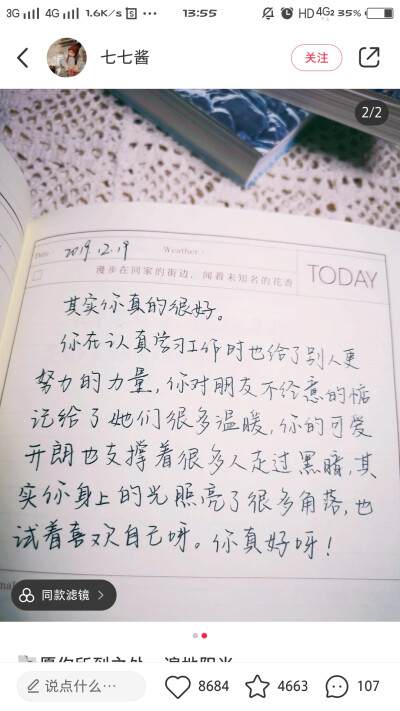 3G 4G 1.6K/s S ··· 13:55 HD 4G2 35%
七七酱 关注
2/2
Date: 2019.12.19 Weather:
漫步在回家的街边，闻着未知名的花香
TODAY
其实你真的很好。
你在认真学习工作时也给了别人更
努力的力量，你对朋友不经意的惦
记给了她们很多温暖，你的可爱
开朗也支撑着很多人走过黑暗，其
实你身上的光照亮了很多角落，也
试着喜欢自己呀。你真好呀！
同款滤镜
说点什么… 8684 4663 107